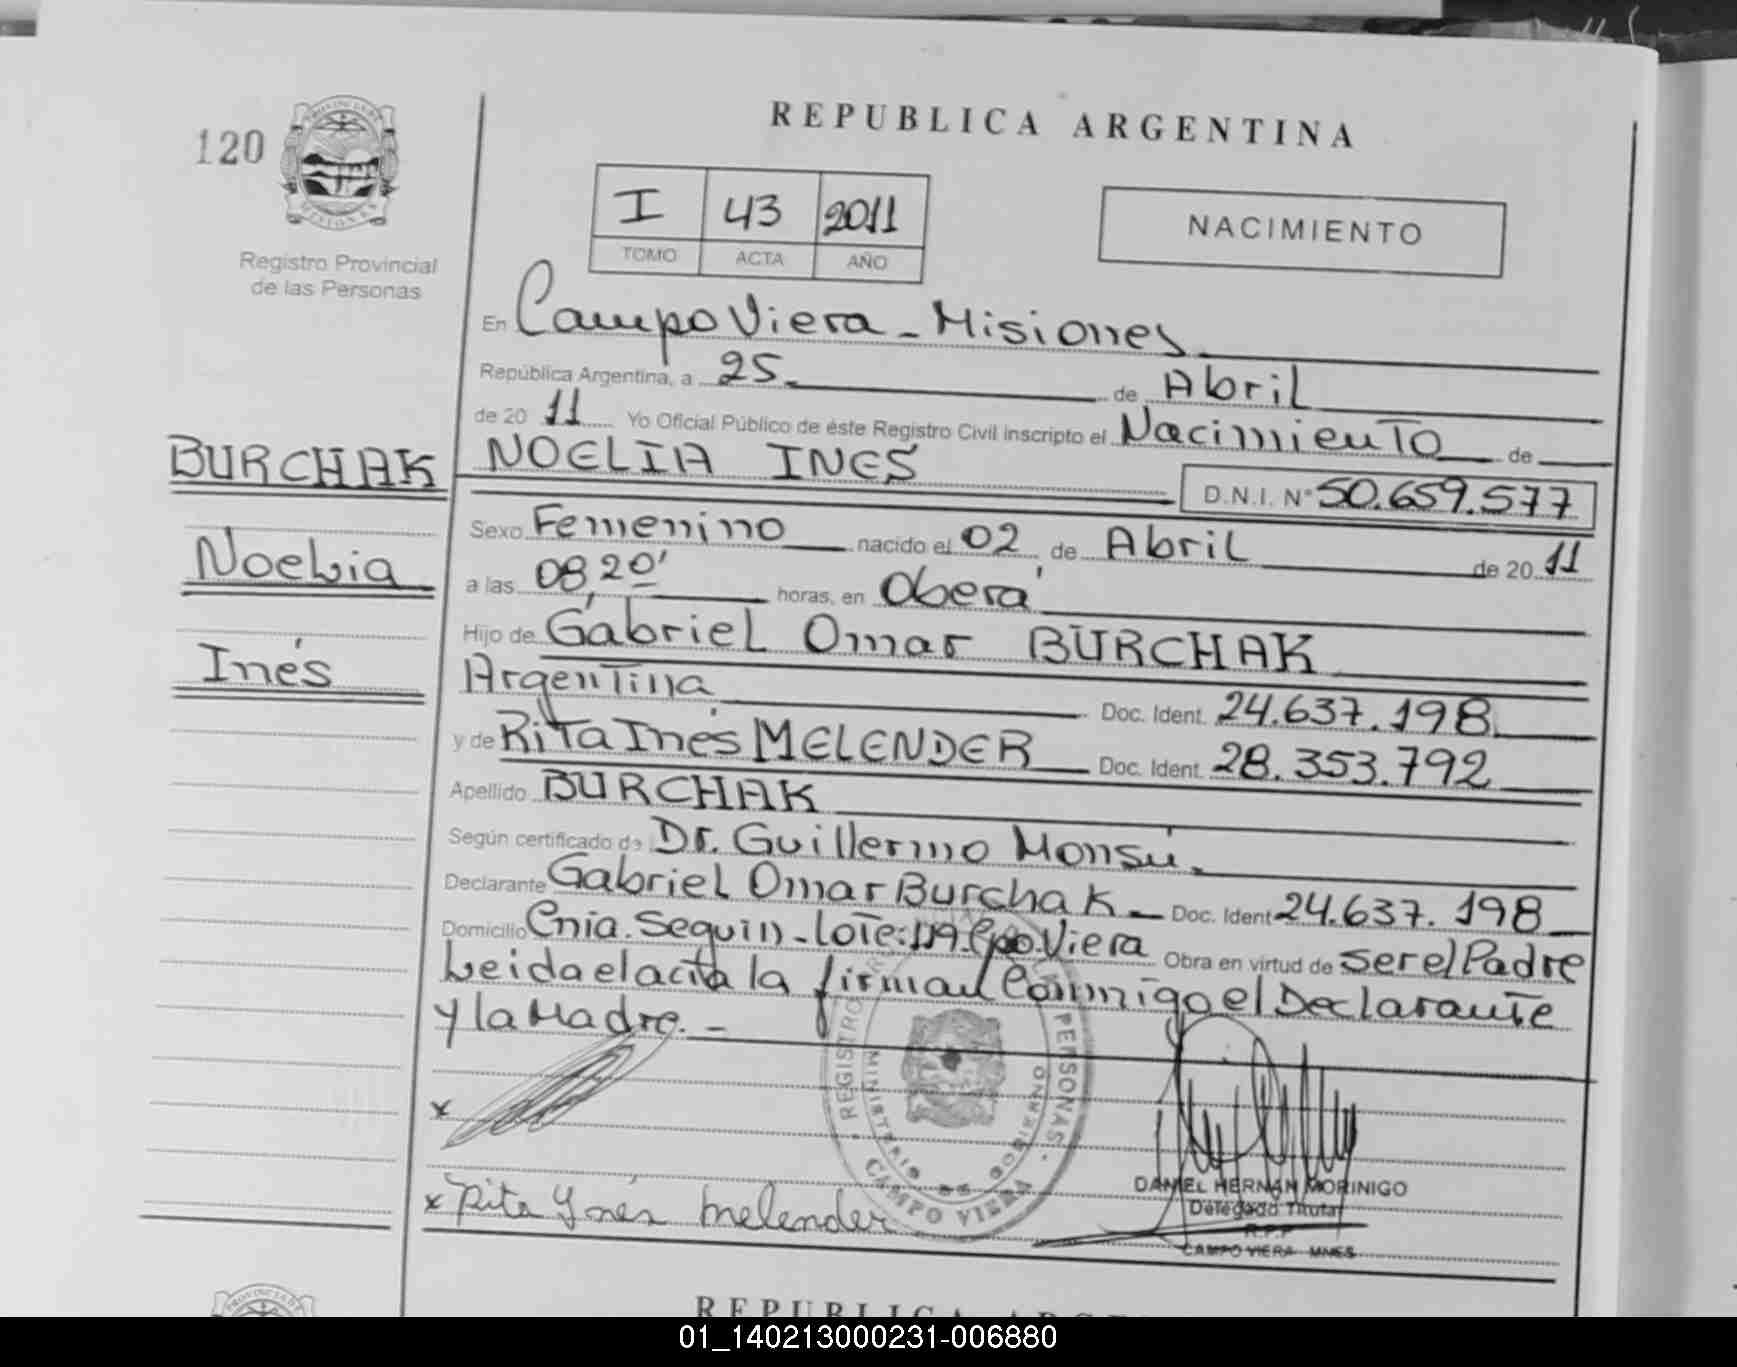 REPUBLICA ARGENTINA
120
PROVINCIA DE
MISIONES
Registro Provincial
de las Personas
I 43 2011
TOMO ACTA AÑO
NACIMIENTO
En Campo Viera - Misiones
República Argentina, a 25 de Abril
de 20 11 Yo Oficial Público de éste Registro Civil inscripto el Nacimiento de
BURCHAK
NOELIA INES
D.N.I. N° 50.659.577
Noelia
Inés
Sexo Femenino nacido el 02 de Abril de 20 11
a las 08,20' horas, en Oberá
Hijo de Gabriel Omar BURCHAK
Argentina Doc. Ident. 24.637.198
y de Rita Inés MELENDER Doc. Ident. 28.353.792
Apellido BURCHAK
Según certificado de Dr. Guillermo Monsú.
Declarante Gabriel Omar Burchak - Doc. Ident 24.637.198
Domicilio Cnia. Seguin - Lote: 119 - Cpo. Viera Obra en virtud de ser el Padre
Leida el acta la firman Conmigo el Declarante
y la Madre. -
x
x Rita Ynés Melender
REGISTRO PERSONAS
MINISTERIO DE GOBIERNO
CAMPO VIERA
DANIEL HERNAN MORINIGO
Delegado Titular
R.P.P
CAMPO VIERA MNES
PROVINCIA DE
REPUBLICA ARGE
01_140213000231-006880